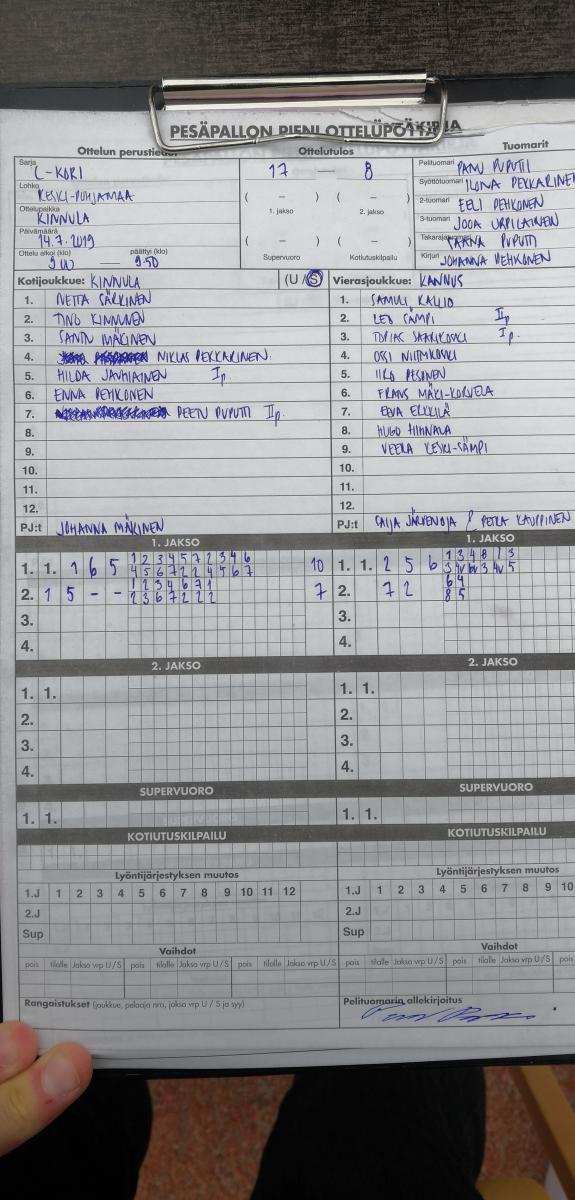 PESÄPALLON PIENI OTTELUPÖYTÄKIRJA
Ottelun perustiedot Ottelutulos Tuomarit
Sarja C-KORI 17 — 8 Pelituomari PANU PUPUTTI
Lohko KESKI-POHJANMAA ( – ) ( – ) Syöttötuomari ILONA PEKKARINEN
Ottelupaikka KINNULA 1. jakso 2. jakso 2-tuomari EELI PEHKONEN
Päivämäärä 14.7.2019 ( – ) ( – ) 3-tuomari JOOA URPILAINEN
Ottelu alkoi (klo) päättyi (klo) Supervuoro Kotiutuskilpailu Takarajatuomari PUPUTTI
— 9.50 Kirjuri JOHANNA VEHKONEN
Kotijoukkue: KINNULA (U / S) Vierasjoukkue: KANNUS
1. NETTA SÄRKINEN 1. SAMULI KALLIO
2. TINO KINNUNEN 2. LEO SÄMPI IIp
3. SANTU MÄKINEN 3. TOPIAS SAARIKOSKI Ip.
4. NIKLAS PEKKARINEN. 4. OSSI NIITTYKOSKI
5. HILDA JAUHIAINEN Ip 5. IIRO PESONEN
6. ENNA PEHKONEN 6. FRANS MÄKI-KORVELA
7. PEETU PUPUTTI IIp. 7. EEVA ERKKILÄ
8. 8. HUGO HIHNALA
9. 9. VEERA KESKI-SÄMPI
10. 10.
11. 11.
12. 12.
PJ:t JOHANNA MÄKINEN PJ:t SAIJA JÄRVENOJA / PETRA KAUPPINEN
1. JAKSO 1. JAKSO
1. 1. 1 6 5 1 2 3 4 5 7 2 3 4 6 10 1. 1. 2 5 6 1 3 4 8 1 3
4 5 6 7 2 2 4 5 6 7 3 4v 6v 3 4v 5
2. 1 5 - - 1 2 3 4 6 7 1 7 2. 7 2 6 4
2 3 6 7 2 2 2 8 5
3. 3.
4. 4.
2. JAKSO 2. JAKSO
1. 1. 1. 1.
2. 2.
3. 3.
4. 4.
SUPERVUORO SUPERVUORO
1. 1. 1. 1.
KOTIUTUSKILPAILU KOTIUTUSKILPAILU
Lyöntijärjestyksen muutos Lyöntijärjestyksen muutos
1.J 1 2 3 4 5 6 7 8 9 10 11 12 1.J 1 2 3 4 5 6 7 8 9 10
2.J 2.J
Sup Sup
Vaihdot Vaihdot
pois tilalle Jakso vrp U / S pois tilalle Jakso vrp U / S pois tilalle pois tilalle Jakso vrp U / S pois tilalle Jakso vrp U / S
Rangaistukset (joukkue, pelaaja nro, jakso vrp U / S ja syy) Pelituomarin allekirjoitus